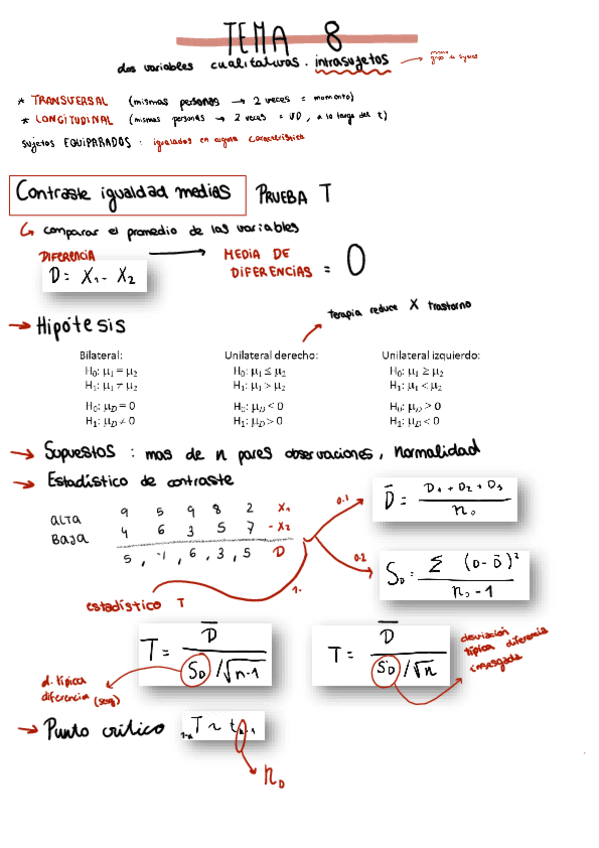 TEMA 8
dos variables cualitativas. intrasujetos → mismo grupo de sujetos
* TRANSVERSAL (mismas personas → 2 veces = momento)
* LONGITUDINAL (mismas personas → 2 veces = VD, a lo largo del t)
Sujetos EQUIPARADOS : igualados en alguna característica
Contraste igualdad medias PRUEBA T
comparar el promedio de las variables
DIFERENCIA → MEDIA DE DIFERENCIAS = 0
D = X₁ - X₂
→ Hipótesis
terapia reduce X trastorno
Bilateral: Unilateral derecho: Unilateral izquierdo:
H₀: μ₁ = μ₂ H₀: μ₁ ≤ μ₂ H₀: μ₁ ≥ μ₂
H₁: μ₁ ≠ μ₂ H₁: μ₁ > μ₂ H₁: μ₁ < μ₂
H₀: μD = 0 H₀: μD < 0 H₀: μD > 0
H₁: μD ≠ 0 H₁: μD > 0 H₁: μD < 0
→ Supuestos : mas de n pares observaciones, normalidad
→ Estadístico de contraste
ALTA 9 5 9 8 2 X₁
BAJA 4 6 3 5 7 - X₂
5, -1, 6, 3, 5 D
0.1
D̄ = D₁ + D₂ + D₃ / n₀
0.2
S_D = Σ (D - D̄)² / n₀ - 1
1.
estadístico T
T = D̄ / S_D / √n-1
T = D̄ / S_D / √n
d. típica diferencia (sesg)
desviación típica diferencia insesgada
→ Punto crítico ₁₋α T ~ t n-1
n_D